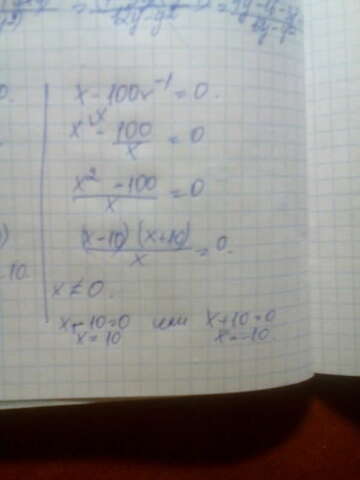 x - 100x⁻¹ = 0.
x - 100/x = 0
(x² - 100)/x = 0
(x-10)(x+10)/x = 0.
x ≠ 0.
x - 10 = 0 или x + 10 = 0
x = 10 x = -10.
0.
)
10.